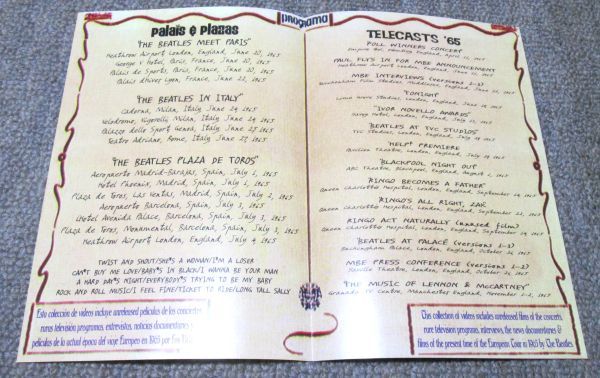 programa
Palais & Plazas
"THE BEATLES MEET PARIS"
Heathrow Airport London, England, June 20, 1965
George V Hotel, Paris, France, June 20, 1965
Palais de Sports, Paris, France, June 20, 1965
Palais d'hiver Lyon, France, June 22, 1965
"THE BEATLES IN ITALY"
Cadorna, Milan, Italy June 24 1965
Velodromo, Vigorelli Milan, Italy June 24 1965
Palazzo dello Sport Genoa, Italy June 25 1965
Teatro Adriano, Rome, Italy June 27, 1965
"THE BEATLES PLAZA DE TOROS"
Aeropuerto Madrid-Barajas, Spain, July 1, 1965
Hotel Phoenix, Madrid, Spain, July 1, 1965
Plaza de Toros, Las Ventas, Madrid, Spain, July 2, 1965
Aeropuerto Barcelona, Spain, July 3, 1965
Hotel Avenida Palace, Barcelona, Spain, July 3, 1965
Plaza de Toros, Monumental, Barcelona, Spain, July 3, 1965
Heathrow Airport London, England, July 4 1965
TWIST AND SHOUT/SHE'S A WOMAN/I'M A LOSER
CAN'T BUY ME LOVE/BABY'S IN BLACK/I WANNA BE YOUR MAN
A HARD DAY'S NIGHT/EVERYBODY'S TRYING TO BE MY BABY
ROCK AND ROLL MUSIC/I FEEL FINE/TICKET TO RIDE/LONG TALL SALLY
Esta colección de videos incluye unreleased películas de los conciertos
raros televisión programas, entrevistas, noticias documentaries y
películas de la actual época del viaje Europeo en 1965 por
TELECASTS '65
POLL WINNERS CONCERT
Empire Pool, Wembley England, April 11, 1965
PAUL FLYS IN FOR MBE ANNOUNCEMENT
Heathrow Airport London, England, June
MBE INTERVIEWS (versions 1-2)
Twickenham Film Studios, Middlesex, England, June 12, 1965
"TONIGHT"
London, England, June
"IVOR NOVELLO AWARDS"
Savoy Hotel, London, England, July 13, 1965
"BEATLES AT TVC STUDIOS"
TVC Studios, London, England, July
"HELP! PREMIERE
Pavilion Theatre, London, England, July 29 1965
"BLACKPOOL NIGHT OUT"
ABC Theatre, Blackpool, England, August 1, 1965
"RINGO BECOMES A FATHER"
Queen Charlotte's Hospital, London, England, September
"RINGO'S ALL RIGHT, ZAK"
Queen Charlotte's Hospital, London, England, September 22, 1965
RINGO ACT NATURALLY (unused film)
Queen Charlotte Hospital, London, England, September
"BEATLES AT PALACE (versions 1-3)
Buckingham Palace, London, England, October 26, 1965
MBE PRESS CONFERENCE (versions 1-3)
Saville Theatre, London, England, October 26, 1965
"THE MUSIC OF LENNON & McCARTNEY"
Granada TV Centre, Manchester England, November 1-2, 1965
This collection of videos includes unreleased films of the concerts,
rare television programs, interviews, the news documentaries &
films of the present time of the European Tour in 1965 by The Beatles.